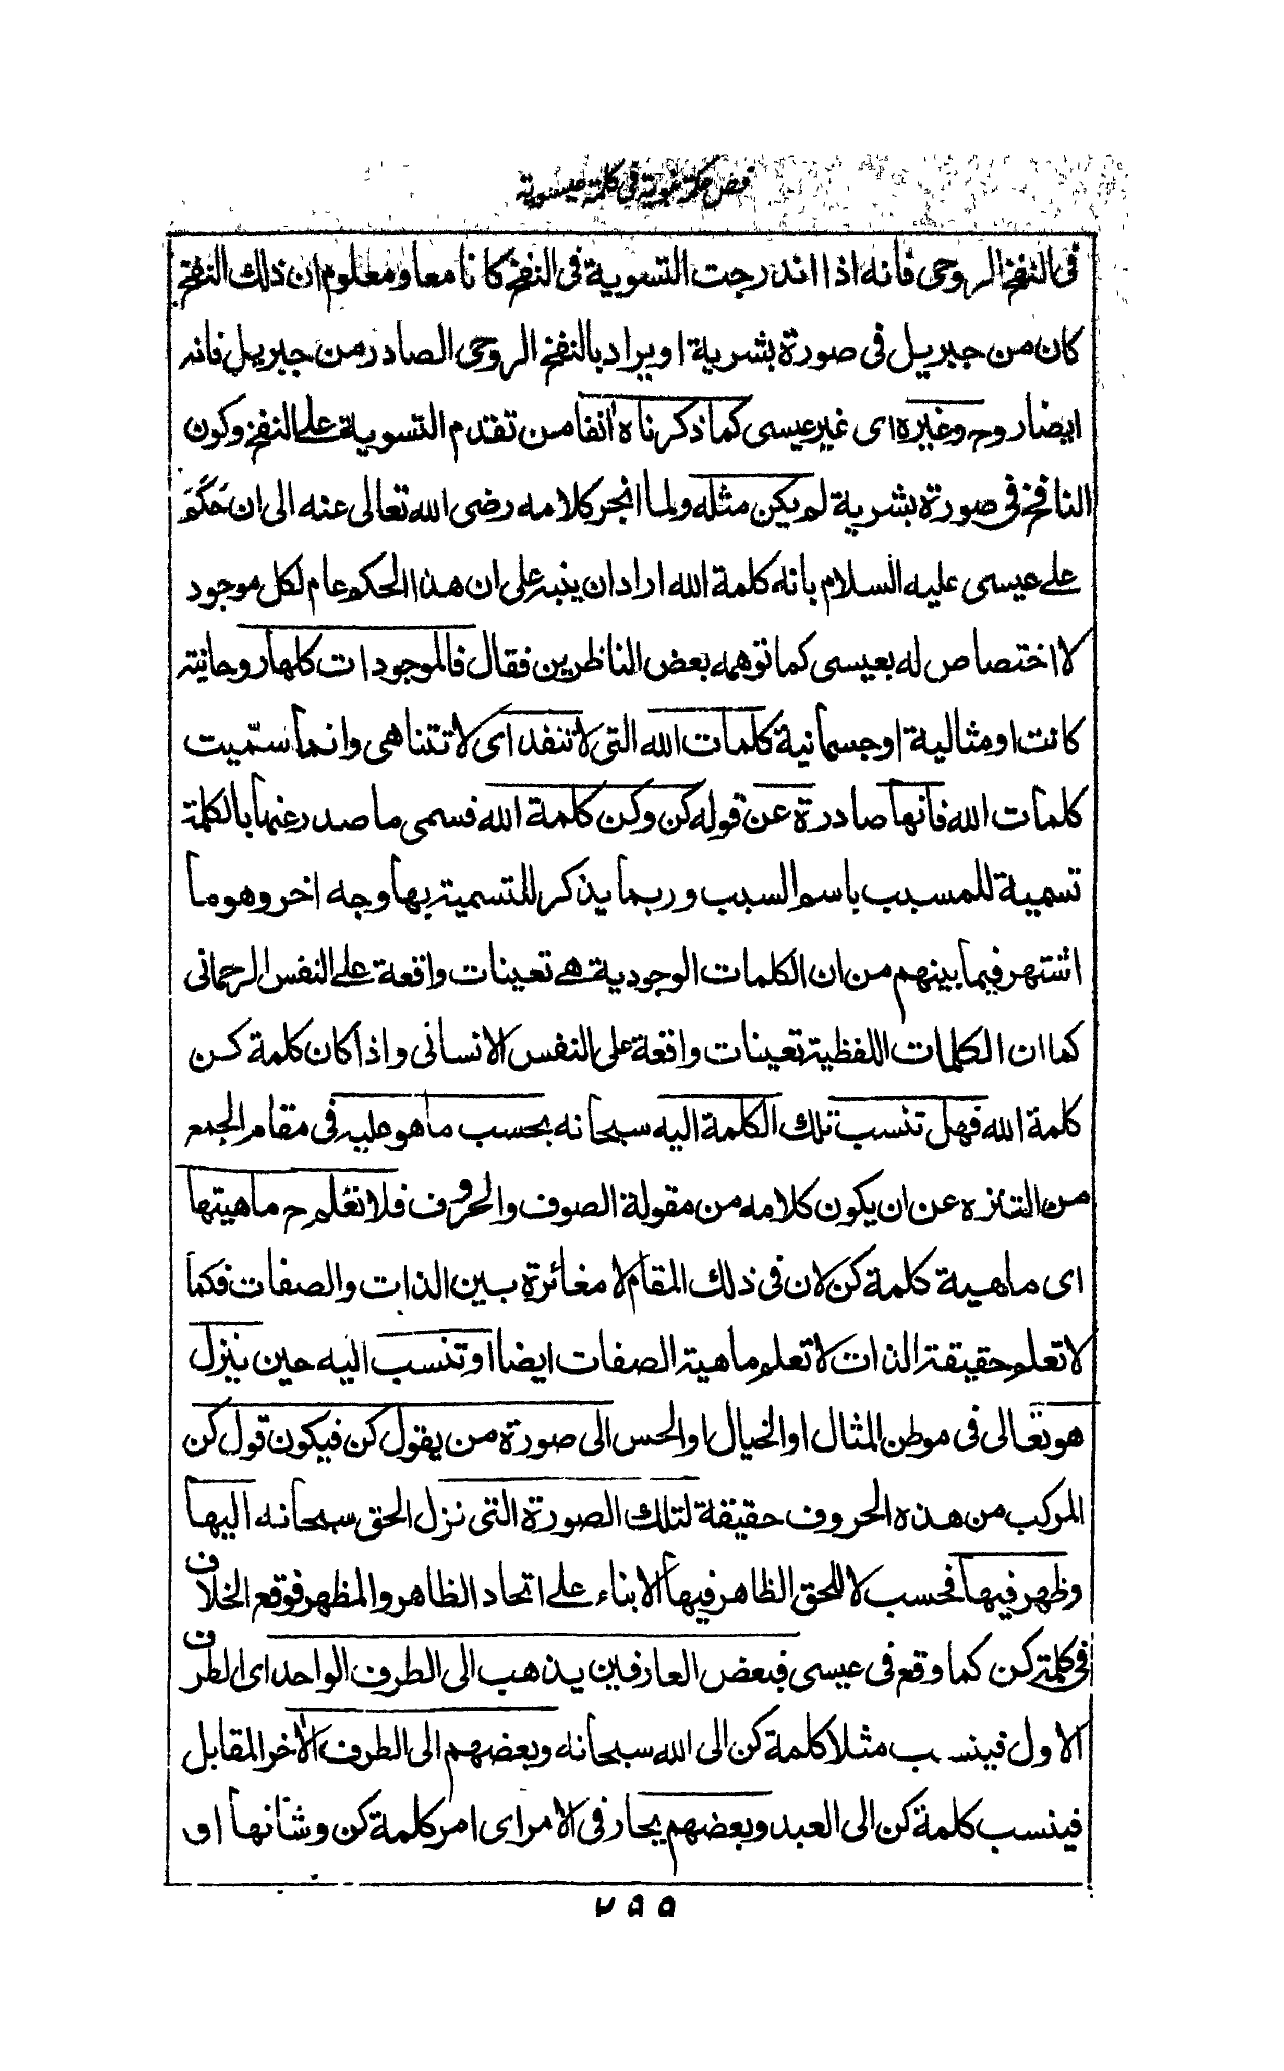 فص حكمة نبوية في كلمة عيسوية
فى النفخ الروحى فانه اذا اندرجت التسوية فى النفخ كانا معا ومعلوم ان ذلك النفخ
كان من جبريل فى صورة بشرية او يراد بالنفخ الروحى الصادر من جبريل فانه
ايضا روح وغيره اى غير عيسى كما ذكرناه انفا من تقدم التسوية على النفخ وكون
النافخ فى صورة بشرية لم يكن مثله ولما انجر كلامه رضى الله تعالى عنه الى ان حَكَمَ
على عيسى عليه السلام بانه كلمة الله اراد ان ينبه على ان هذا الحكم عام لكل موجود
لا اختصاص له بعيسى كما توهمه بعض الناظرين فقال فالموجودات كلها روحانية
كانت او مثالية او جسمانية كلمات الله التى لا تنفد اى لا تتناهى وانما سمّيت
كلمات الله فانها صادرة عن قوله كن وكن كلمة الله فسمى ما صدر عنها بالكلمة
تسمية للمسبب باسم السبب وربما يذكر للتسمية بها وجه اخر وهو ما
اشتهر فيما بينهم من ان الكلمات الوجودية هى تعينات واقعة على النفس الرحمانى
كما ان الكلمات اللفظية تعينات واقعة على النفس الانسانى واذا كان كلمة كن
كلمة الله فهل تنسب تلك الكلمة اليه سبحانه بحسب ما هو عليه فى مقام الجمع
من التنزه عن ان يكون كلامه من مقولة الصوف والحروف فلا تعلم ح ماهيتها
اى ماهية كلمة كن لان فى ذلك المقام لا مغائرة بين الذات والصفات فكما
لا تعلم حقيقة الذات لا تعلم ماهية الصفات ايضا او تنسب اليه حين ينزل
هو تعالى فى موطن المثال او الخيال او الحس الى صورة من يقول كن فيكون قول كن
المركب من هذه الحروف حقيقة لتلك الصورة التى نزل الحق سبحانه اليها
وظهر فيها فحسب لا للحق الظاهر فيها الا بناء على اتحاد الظاهر والمظهر فوقع الخلاف
فى كلمة كن كما وقع فى عيسى فبعض العارفين يذهب الى الطرف الواحد اى الطرف
الاول فينسب مثلا كلمة كن الى الله سبحانه وبعضهم الى الطرف الاخر المقابل
فينسب كلمة كن الى العبد وبعضهم يحار فى الامر اى امر كلمة كن وشانها او
۲۵۵